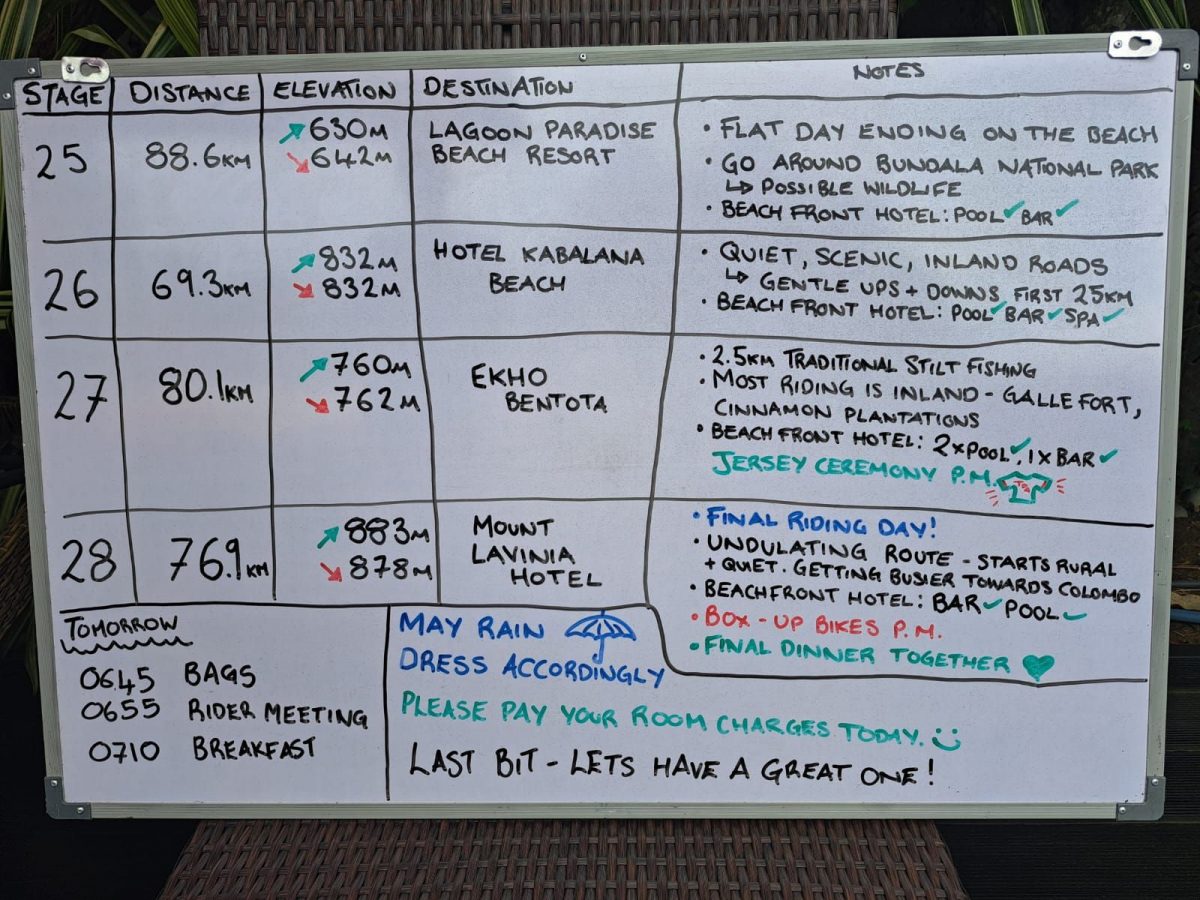 STAGE DISTANCE ELEVATION DESTINATION NOTES
25 88.6KM
↗630M
↘642M
LAGOON PARADISE
BEACH RESORT
• FLAT DAY ENDING ON THE BEACH
• GO AROUND BUNDALA NATIONAL PARK
↳ POSSIBLE WILDLIFE
• BEACH FRONT HOTEL: POOL✓ BAR✓
26 69.3KM
↗832M
↘832M
HOTEL KABALANA
BEACH
• QUIET, SCENIC, INLAND ROADS
↳ GENTLE UPS + DOWNS FIRST 25KM
• BEACH FRONT HOTEL: POOL✓ BAR✓ SPA✓
27 80.1KM
↗760M
↘762M
EKHO
BENTOTA
• 2.5KM TRADITIONAL STILT FISHING
• MOST RIDING IS INLAND - GALLE FORT,
CINNAMON PLANTATIONS
• BEACH FRONT HOTEL: 2xPOOL✓, 1xBAR✓
JERSEY CEREMONY P.M.
28 76.9KM
↗883M
↘878M
MOUNT
LAVINIA
HOTEL
• FINAL RIDING DAY!
• UNDULATING ROUTE - STARTS RURAL
+ QUIET. GETTING BUSIER TOWARDS COLOMBO
• BEACHFRONT HOTEL: BAR✓ POOL✓
• BOX-UP BIKES P.M.
• FINAL DINNER TOGETHER ♥
TOMORROW
0645 BAGS
0655 RIDER MEETING
0710 BREAKFAST
MAY RAIN
DRESS ACCORDINGLY
PLEASE PAY YOUR ROOM CHARGES TODAY. :)
LAST BIT - LETS HAVE A GREAT ONE!